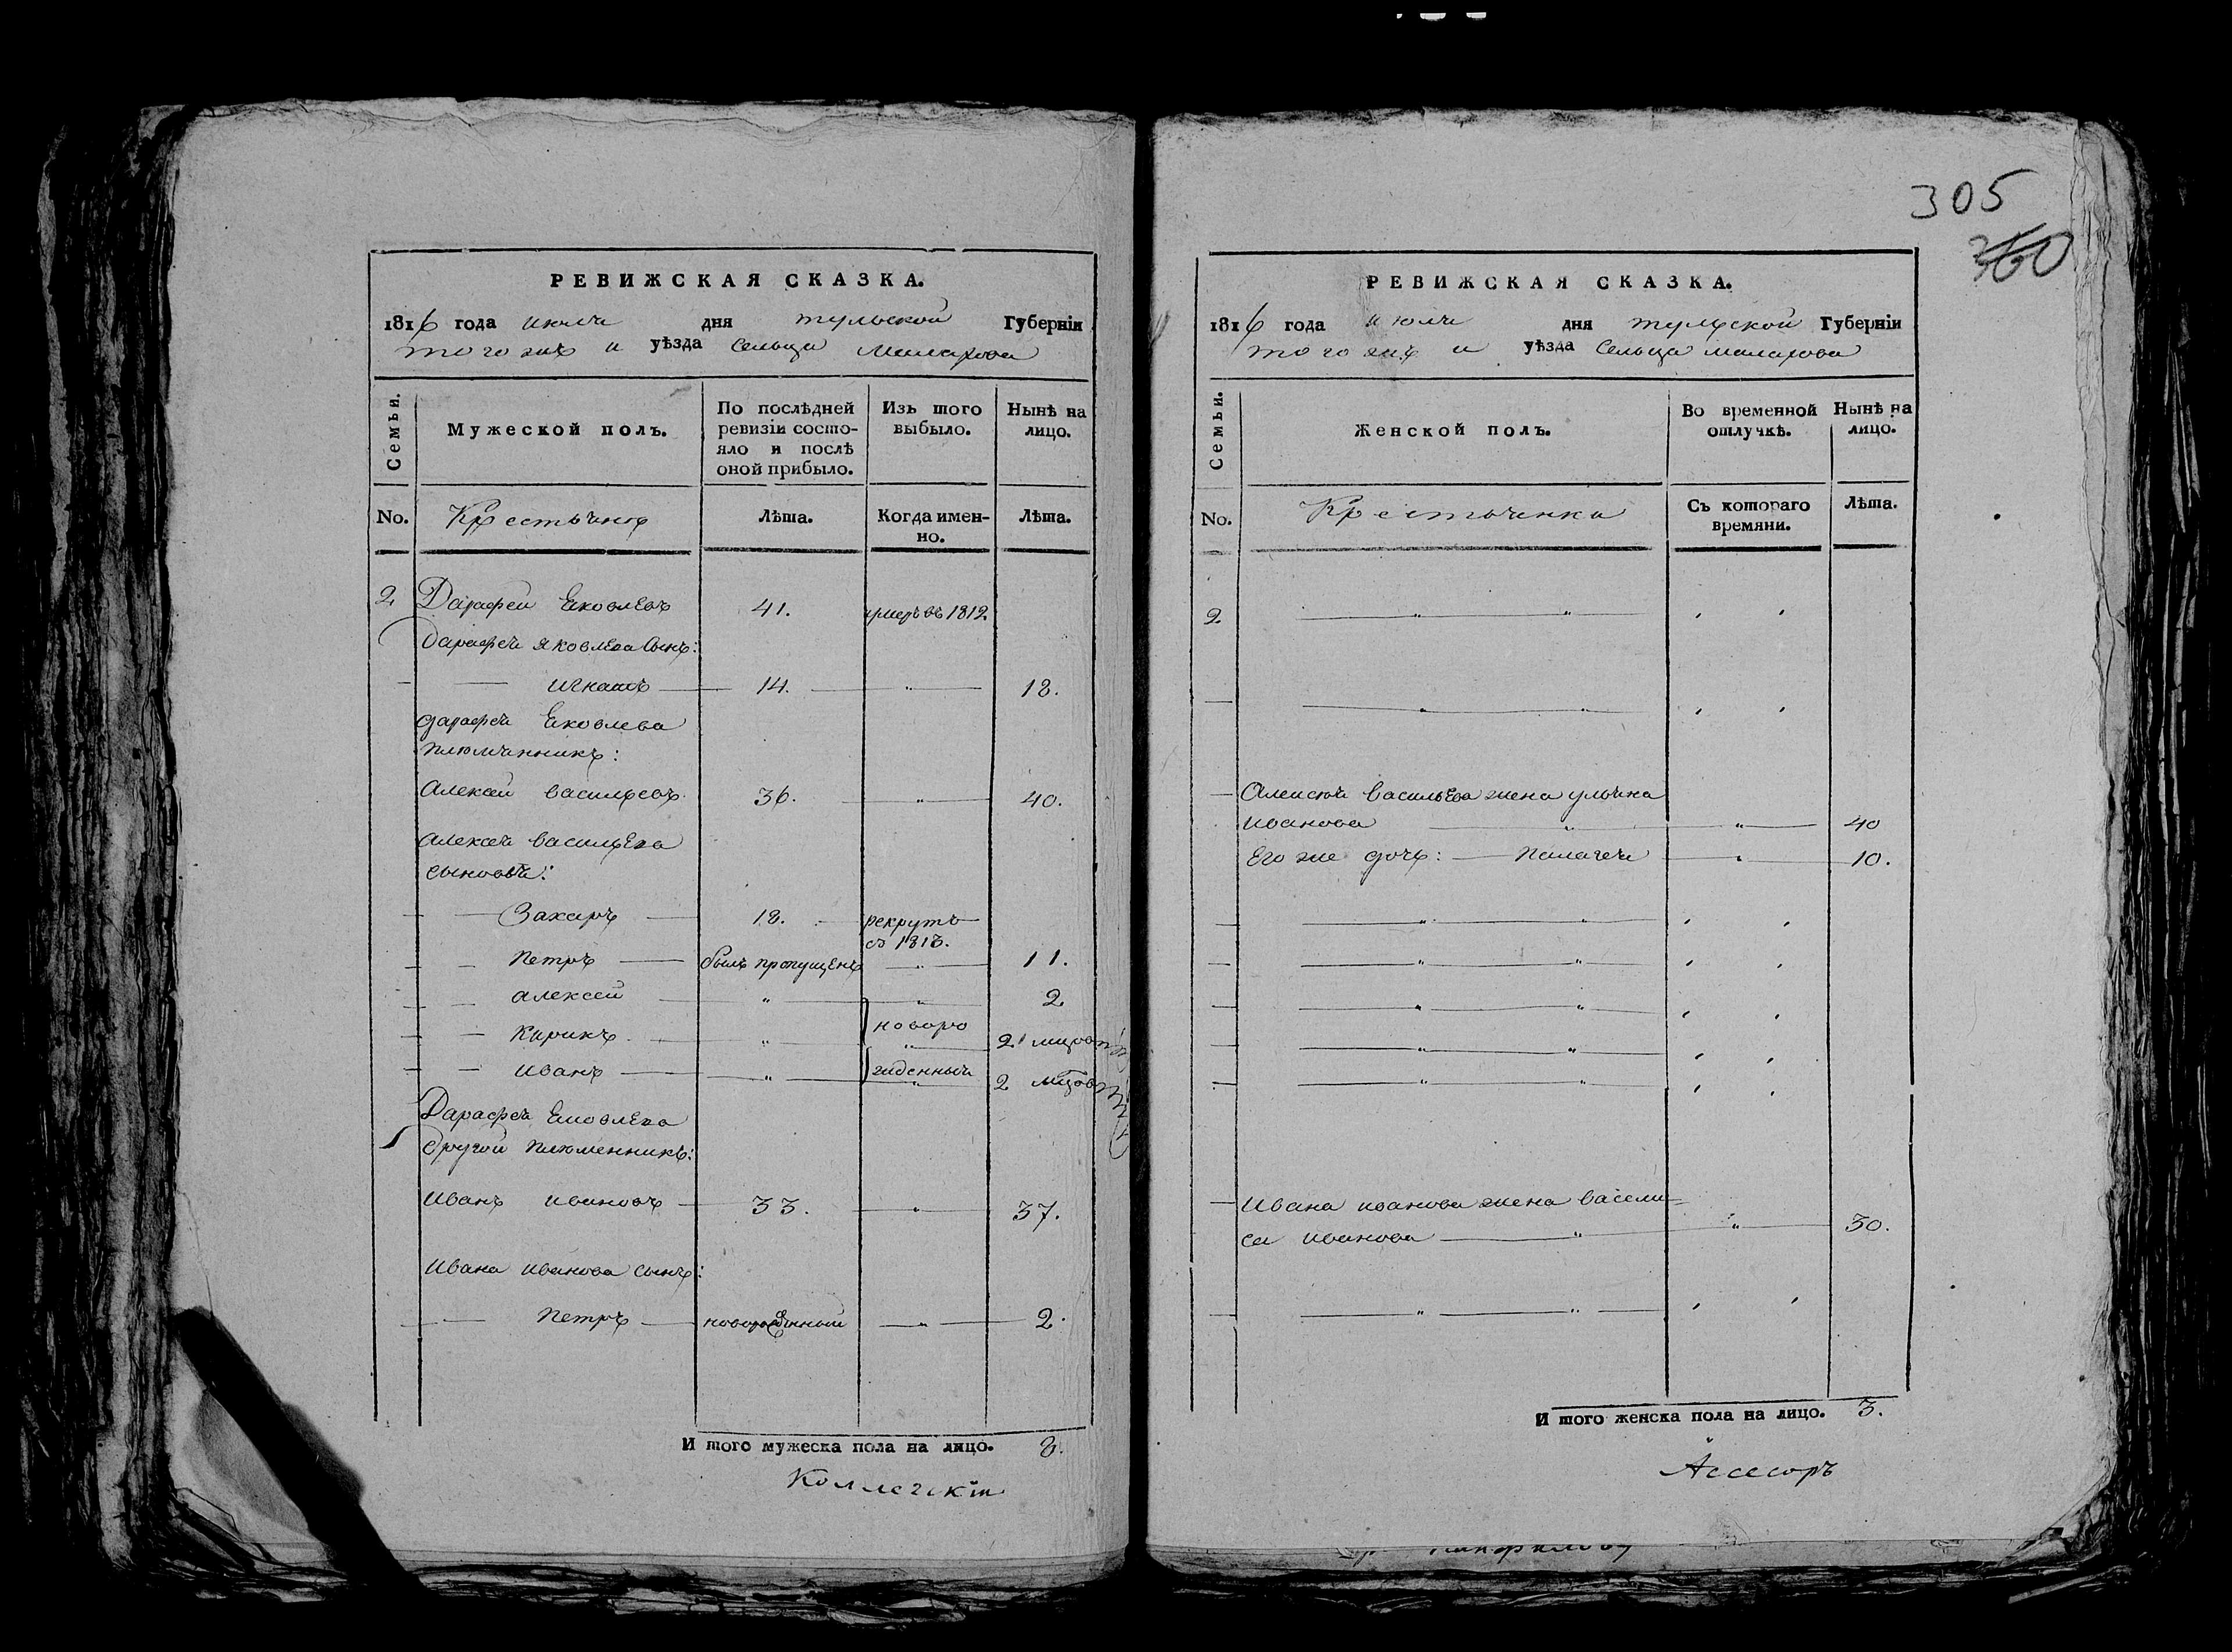 РЕВИЖСКАЯ СКАЗКА.
1816 года июля дня тульской Губерніи
того жъ и уѣзда сельца Малахова
Семьи.
Мужеской полъ.
По послѣдней ревизіи состояло и послѣ оной прибыло.
Изъ того выбыло.
Нынѣ на лицо.
No.
Крестьянъ
Лѣта.
Когда именно.
Лѣта.
2 Дарафей Яковлевъ 41. умеръ въ 1812.
Дарафея Яковлева сынъ:
Игнатъ 14. 18.
дарафея Яковлева
племянникъ:
Алексей васильевъ 36. 40.
алексея васильева
сыновья:
Захаръ 18. рекрутъ
съ 1813.
Петръ былъ пропущенъ 11.
алексей 2
Кирикъ новоро 2
иванъ жденныя 2
Дарафея Яковлева
другой племенникъ:
иванъ ивановъ 33. 37.
ивана иванова сынъ:
Петръ новорожденный 2.
И того мужеска пола на лицо. 8.
305
360
РЕВИЖСКАЯ СКАЗКА.
1816 года июля дня тульской Губерніи
того жъ и уѣзда сельца малахова
Семьи.
Женской полъ.
Во временной отлучкѣ.
Нынѣ на лицо.
No.
Крестьянка
Съ котораго времяни.
Лѣта.
2
Алексея васильева жена ульяна
иванова 40
Его же дочь: Палагея 10.
ивана иванова жена васели-
са иванова 30.
И того женска пола на лицо. 3.
Асессоръ